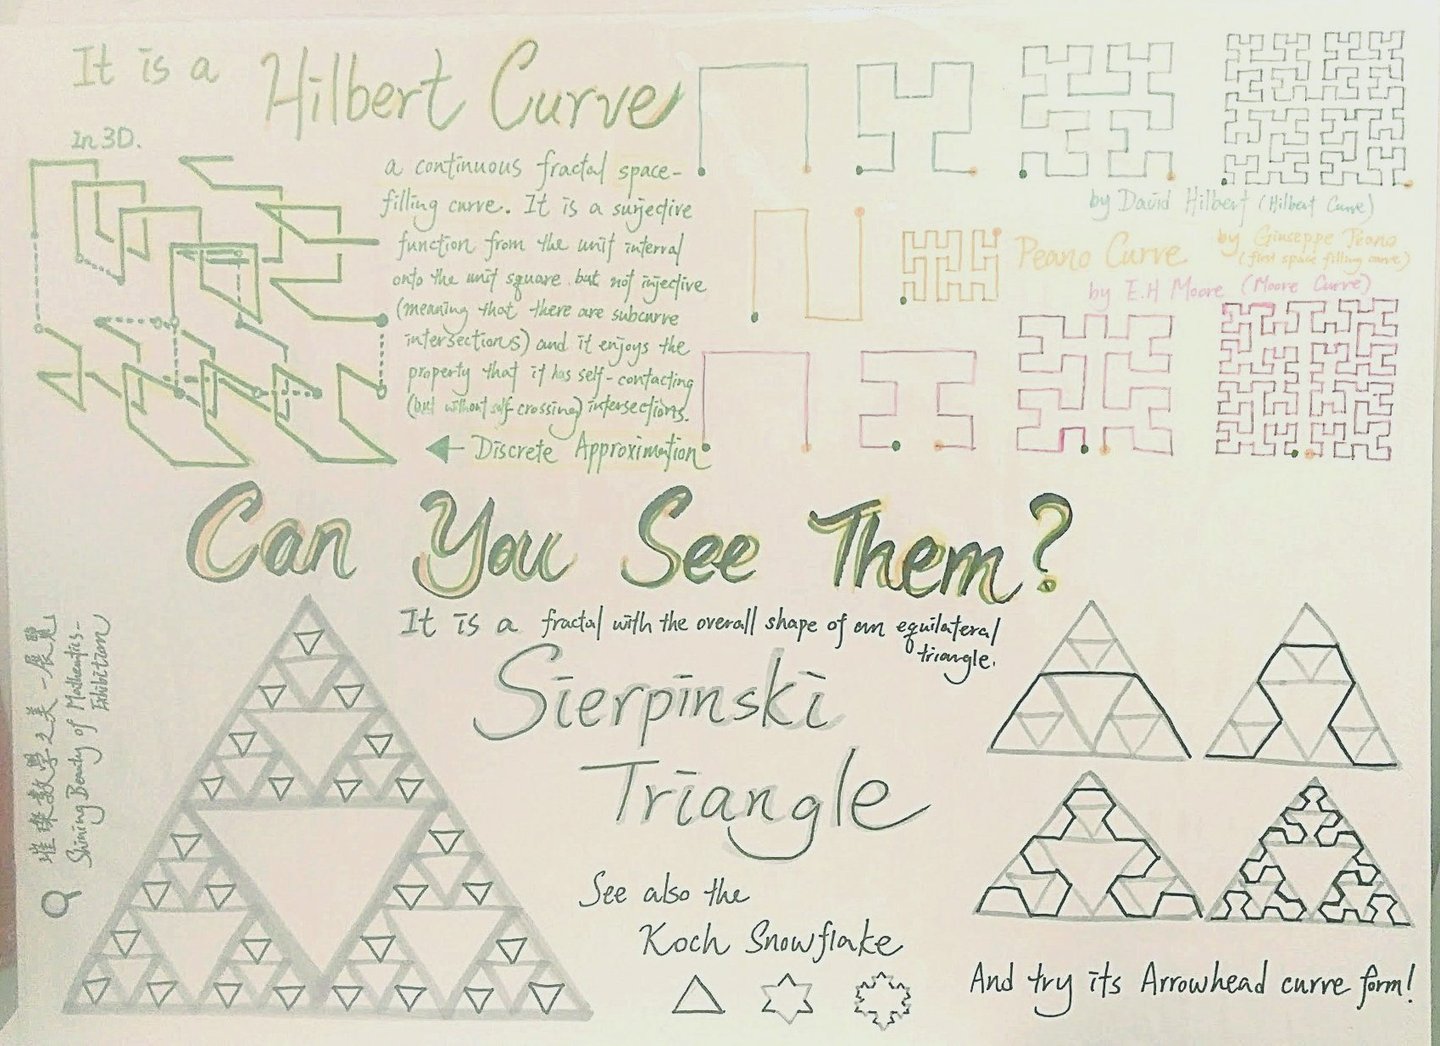 It is a Hilbert Curve
in 3D.
a continuous fractal space-
filling curve. It is a surjective
function from the unit interval
onto the unit square but not injective
(meaning that there are subcurve
intersections) and it enjoys the
property that it has self-contacting
(but without self-crossing) intersections.
Discrete Approximation
by David Hilbert (Hilbert Curve)
Peano Curve
by Giuseppe Peano
(first space filling curve)
by E.H Moore (Moore Curve)
Can You See Them?
It is a fractal with the overall shape of an equilateral
triangle.
Sierpinski
Triangle
See also the
Koch Snowflake
And try its Arrowhead curve form!
璀璨數學之美-展覽
Shining Beauty of Mathematics-
Exhibition